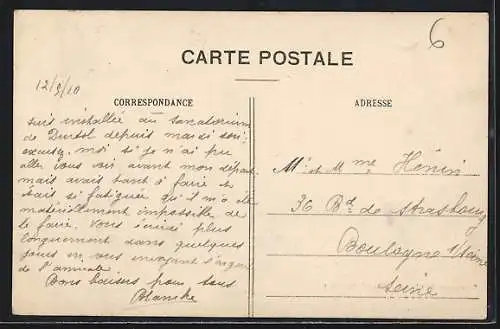 6
CARTE POSTALE
12/9/10
CORRESPONDANCE
ADRESSE
suis installée au sanatorium
de Durtol depuis mardi soir,
excusez-moi si je n'ai pu
aller vous voir avant mon départ
mais avais tant à faire et
étais si fatiguée qu'il m'a été
matériellement impossible de
le faire. Vous écrirai plus
longuement dans quelques
jours en vous envoyant l'argent
de l'amicale
Bons baisers pour tous
Blanche
Mr et Mme Hénin
36 Bd de Strasbourg
Boulogne s/Seine
Seine